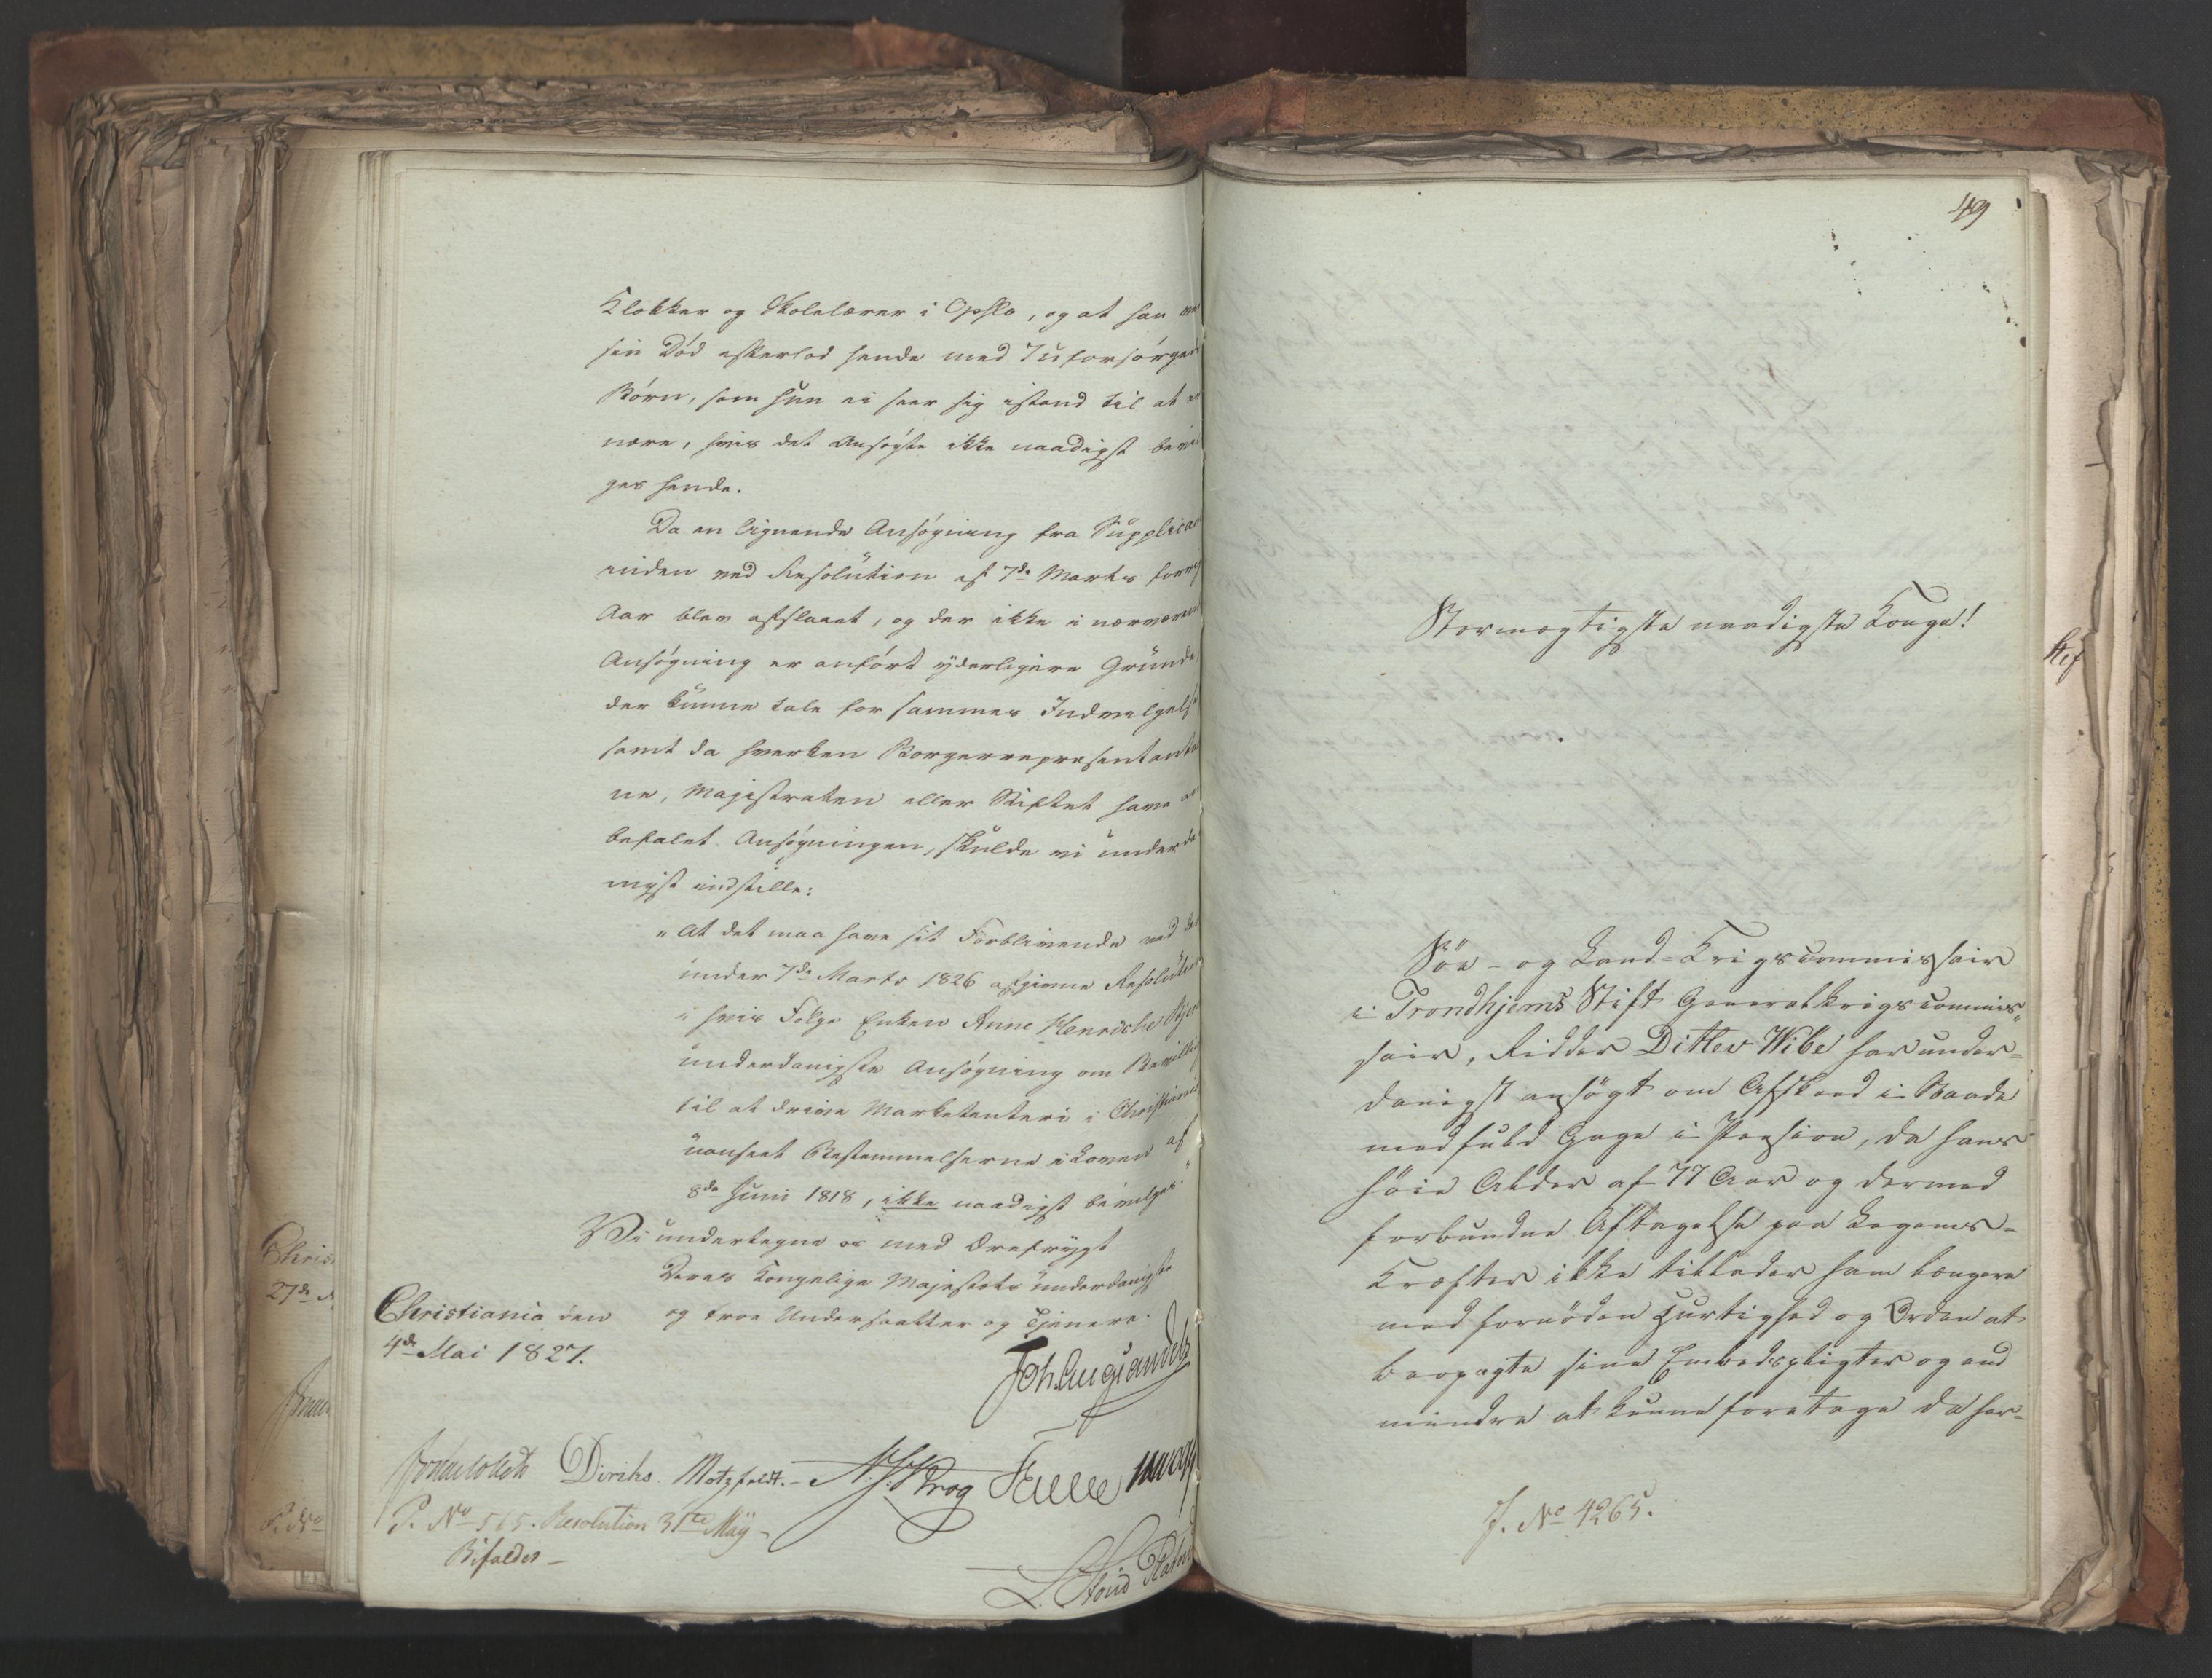 Klokker og Skolelærer i Opslo, og at han
sin Död efterlod hende med 7 uforsörgede
Börn, som hun ei seer sig istand til at
nære, hvis det Ansögte ikke naadigst bevil
ges hende.
Da en lignende Ansögning fra Supplicant
inden ved Resolution af 7de Marts forrige
Aar blev afslaaet, og der ikke i nærværende
Ansögning er anfört yderligere Grunde
der kunne tale for sammes Indvilgelse
samt da hverken Borgerrepresentanter
ne, Magistraten eller Stiftet have an
befalet Ansögningen, skulde vi underda
nigst indstille:
"At det maa have sit Forblivende ved den
under 7de Marts 1826 afgivne Resolution
i hvis Fölge Enken Anne Henriche
underdanigste Ansögning om Bevilling
til at drive Marketenteri i Christiania
uanseet Bestemmelserne i Loven af
8de Juni 1818, ikke naadigst bevilges."
Vi undertegne os med Ærefrygt
Deres Kongelige Majestæts underdanigste
og troe Undersaatter og Tjenere.
Christiania den
4de Mai 1827.
Joh. Aug. Sandels
Diriks. Motzfeldt.- Krog Falle
P. No 515. Resolution 31te Maÿ -
Bifaldes -
49
Stormægtigste naadigste Konge!
Söe- og Land-Krigscommissair
i Trondhjems Stift Generalkrigscommis"
sair, Ridder Ditlev Wibe har under-
danigst ansögt om Afskeed i Naade
med fuld Gage i Pension, da hans
höie Alder af 77 Aar og dermed
forbundne Aftagelse paa Legems-
Kræfter ikke tillader ham længere
med fornöden Hurtighed og Orden at
varetage sine Embedspligter og end
mindre at kunne foretage de her-
J. No 4265.